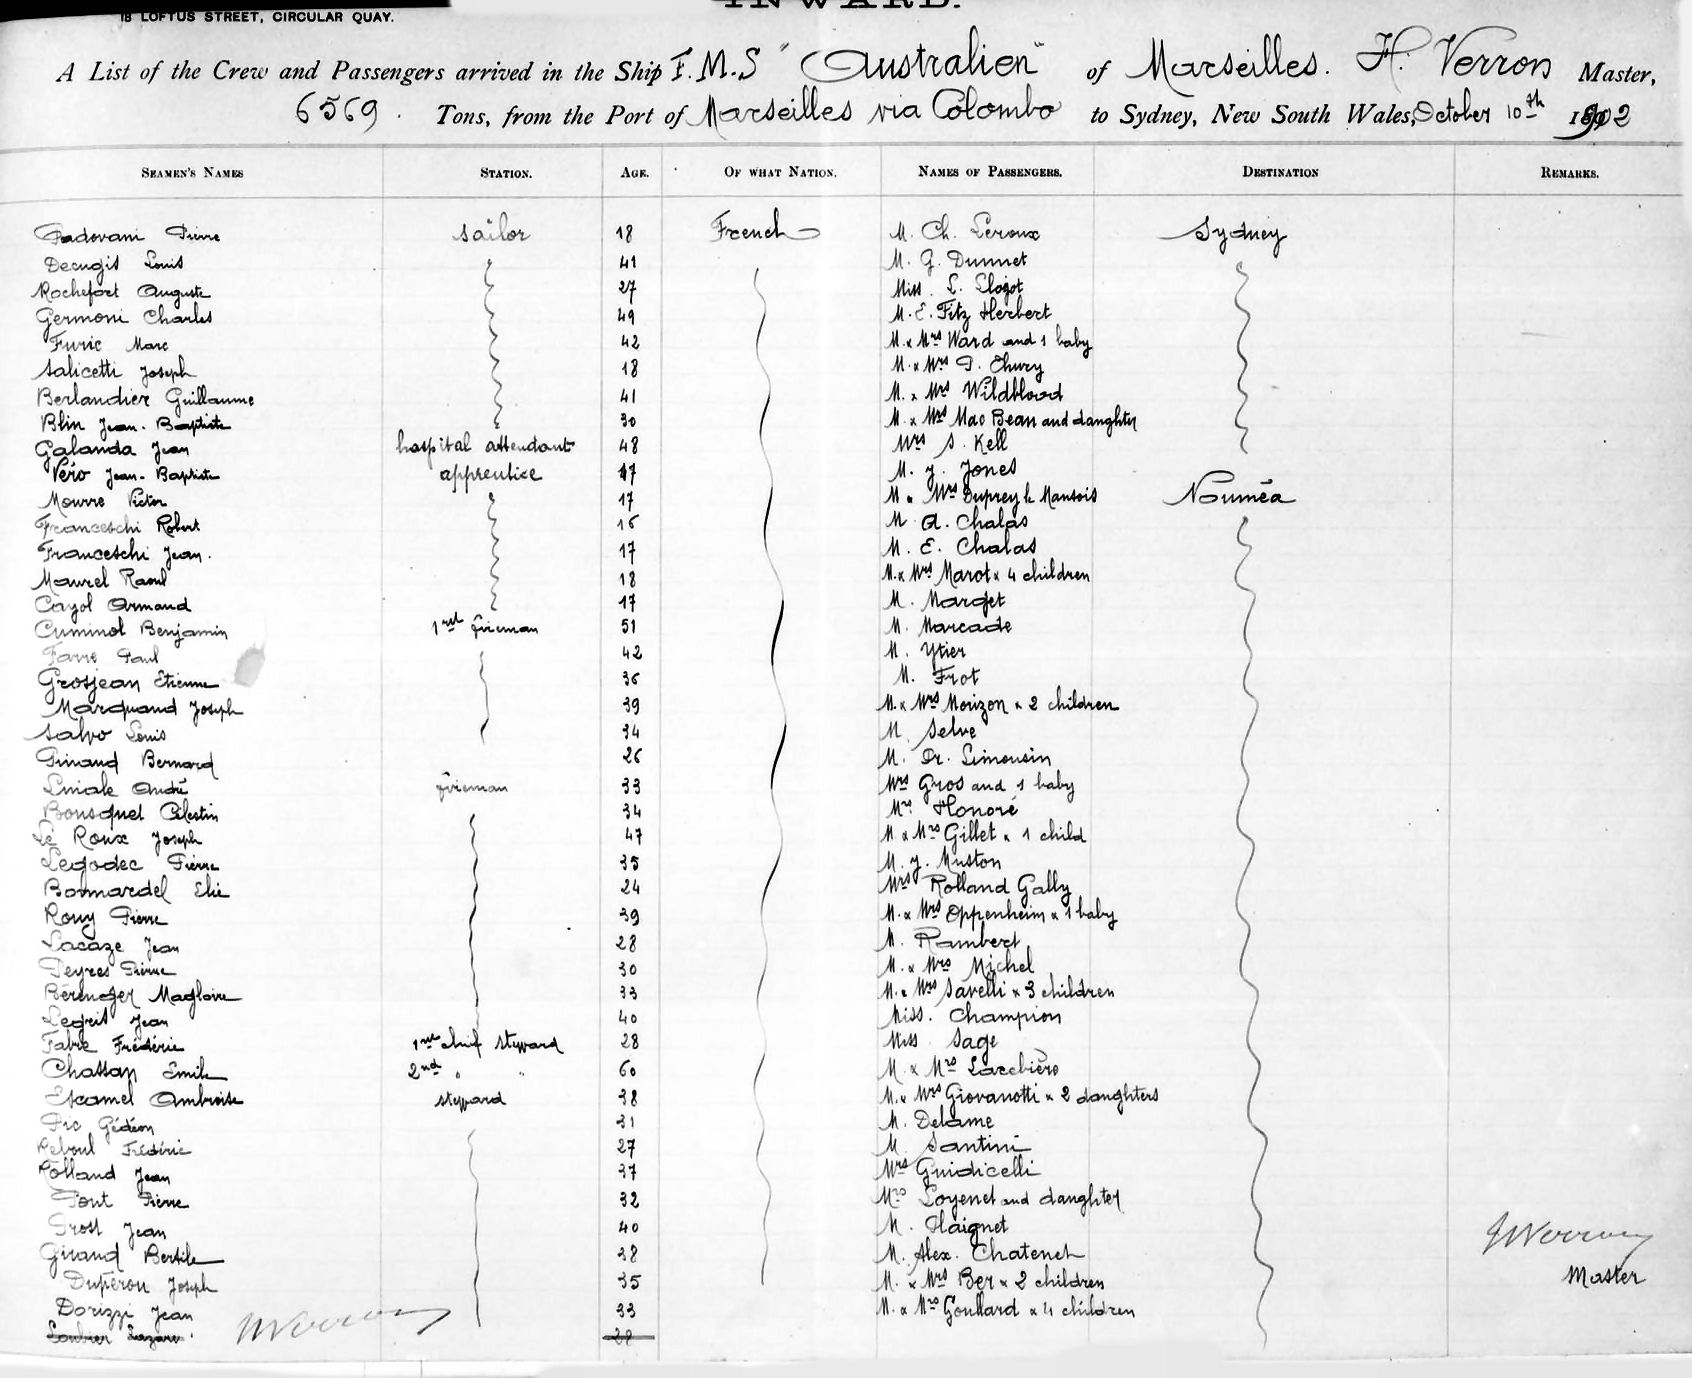 18 LOFTUS STREET, CIRCULAR QUAY.
INWARD.
A List of the Crew and Passengers arrived in the Ship F.M.S "Australien" of Marseilles. H. Verron Master,
6569. Tons, from the Port of Marseilles via Colombo to Sydney, New South Wales, October 10th 1902
SEAMEN'S NAMES STATION. AGE. OF WHAT NATION. NAMES OF PASSENGERS. DESTINATION REMARKS.
Padovani Pierre sailor 18 French M. Ch. Leroux Sydney
Decugis Louis 41 M. G. Dunnet
Rochefort Auguste 27 Miss. L.
Germoni Charles 49 M. E. Fitz Herbert
Furic Marc 42 M. & Mrs Ward and 1 baby
Salicetti Joseph 18 M. & Mrs
Berlandier Guillaume 41 M. & Mrs Wildblood
Blin Jean-Baptiste 30 M. & Mrs Mac Bean and daughter
Galanda Jean hospital attendant 48 Mrs S. Kell
Véro Jean-Baptiste apprentice 17 M. J. Jones
Mourre Victor 17 M & Mrs Duprey le Mansois Nouméa
Franceschi Robert 16 M A. Chalas
Franceschi Jean. 17 M. E. Chalas
Maurel Raoul 18 M. & Mrs Marot & 4 children
Cayol Armand 17 M. Marget
Cuminol Benjamin 1rst fireman 51 M. Marcade
Farre Paul 42 M. Ytier
Grosjean Etienne 36 M. Frot
Marquand Joseph 39 M. & Mrs Morizon & 2 children
Salvo Louis 34 M. Selve
Bernard 26 M. Dr. Limousin
André fireman 33 Mrs Gros and 1 baby
Bousquet Célestin 34 Mrs. Honoré
Le Roux Joseph 47 M & Mrs Gillet & 1 child
Legodec Pierre 35 M. J. Muston
Bonnardel Elie 24 Mrs Rolland Gally
Rouy Pierre 39 M. & Mrs Oppenheim & 1 baby
Lacaze Jean 28 M. Rambert
Peyres Pierre 30 M. & Mrs Michel
Bérenger Magloire 33 M. & Mrs Savelli & 3 children
Legrit Jean 40 Miss. Champion
Fabre Frédéric 1rst chief steward 28 Miss Sage
Chassan Emile 2nd " " 60 M. & Mrs Lacebière
Escamel Ambroise steward 38 M. & Mrs Giovanotti & 2 daughters
Pic Gédéon 31 M. Delame
Reboul Frédéric 27 M. Santini
Rolland Jean 37 Mrs Guidicelli
Pont Pierre 32 Mrs Loyenet and daughter
Prost Jean 40 M. Haignet
Giraud Bertile 38 M. Alex. Chatenet
Duperou Joseph 35 M. & Mrs Ber & 2 children
Master
Dorizzi Jean 33 M. & Mrs Goullard & 4 children
Lazare 28